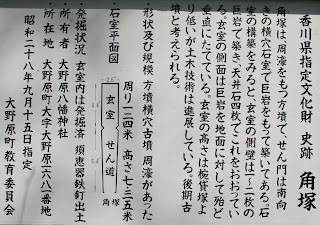 香川県指定文化財 史跡 角塚
角塚は、周濠をもつ方墳で、せん門は南向
きの横穴石室で巨岩をもって築いてある。石
室の構築をみると、玄室の側壁は一〜二枚の
巨岩で築き、天井石四枚でこれをおおってい
る。玄室の側面は巨岩を地面に対して殆ど
垂直にたてている。玄室の高さは椀貸塚よ
り低いが土木技術は進展している。後期古
墳と考えられる。
・形状及び規模 方墳横穴古墳 周濠があった
周り一二四米 高さ七・三五米
・石室平面図
玄室 せん道
角塚
・発掘状況 玄室内は発掘済 須恵器鉄釘出土
・所有者 大野原八幡神社
・所在地 大野原町大字大野原一六八二番地
昭和二十八年九月十五日指定
大野原町教育委員会